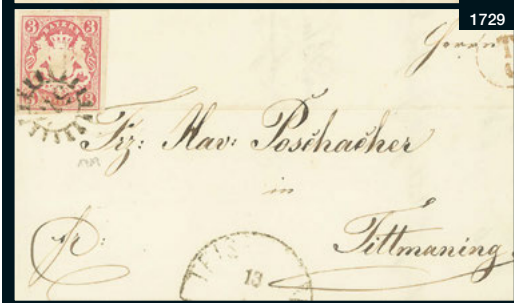 1729
3 BAYERN 3
3 3
Herrn
Frz: Xav: Poschacher
in
fr:
Tittmaning
13